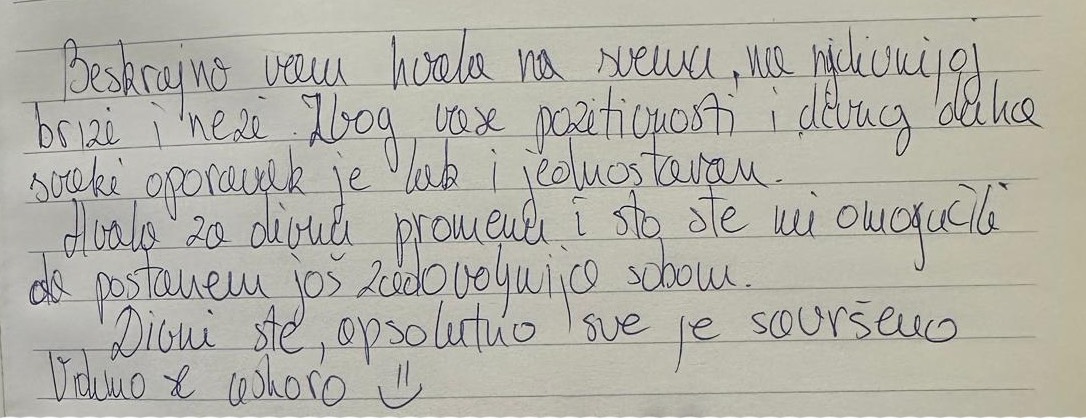 Beskrajno vam hvala na svemu, na najdivnijoj
brizi i nezi. Zbog vase pozitivnosti i divnog duha
svaki oporavak je lak i jednostavan.
Hvala za divnu promenu i sto ste mi omogućili
da postanem još zadovoljnija sobom.
Divni ste, apsolutno sve je savršeno
Vidimo se uskoro :)